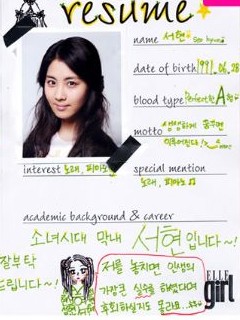 resume
name 서현 Seo hyun
date of birth 1991. 06. 28
blood type Perfect한 A형
motto 생생하게 꿈꾸면
이루어진다!
interest 노래, 피아노
special mention
노래, 피아노
academic background & career
소녀시대 막내 서현입니다~!
잘부탁
드립니다~!
저를 놓치면 인생의
가장큰 실수를 하였다며
후회하실지도 몰라요..
ELLE
girl